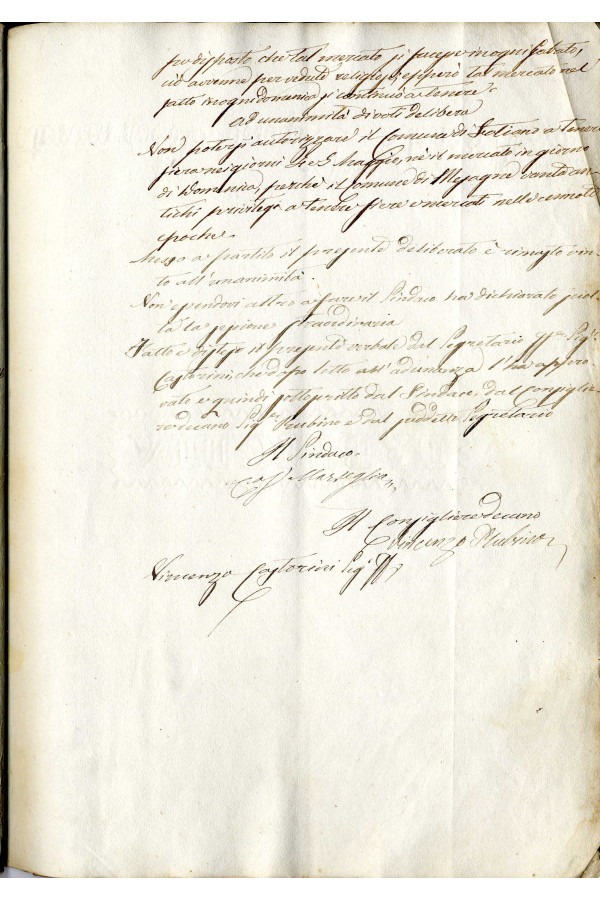 fu disposto che tal mercato si facesse in ogni sabato,
ciò avvenne per vedute religiose, epperò tal mercato nel
fatto in ogni domenica si continuò a tenere.
Ad unanimità di voti delibera
Non potersi autorizzare il Comune di a tenere
fiera nei giorni 4 e 5 Maggio, nè il mercato in giorno
di Domenica, perchè il Comune di Mesagne vanta an-
tichi privilegi a tenere fiere e mercati nelle cennate
epoche.
Messo a partito il presente deliberato è rimasto vin-
to all'unanimità.
Non essendovi altro a fare il Sindaco ha dichiarato sciol-
ta la sessione straordinaria
Fatto e disteso il presente verbale dal Segretario ff. Sig.r
Castorini, che dopo letto all'adunanza l'ha appro-
vato e quindi sottoscritto dal Sindaco, dal Consiglie-
re decano Sig.r Rubino e dal suddetto Segretario
Il Sindaco
Marseglia
Il Consigliere decano
Vincenzo Rubino
Vincenzo Castorini Seg. ff.